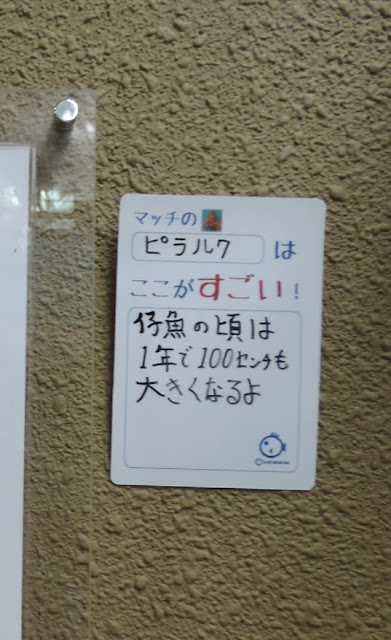 マッチの
ピラルク は
ここがすごい!
仔魚の頃は
1年で100センチも
大きくなるよ